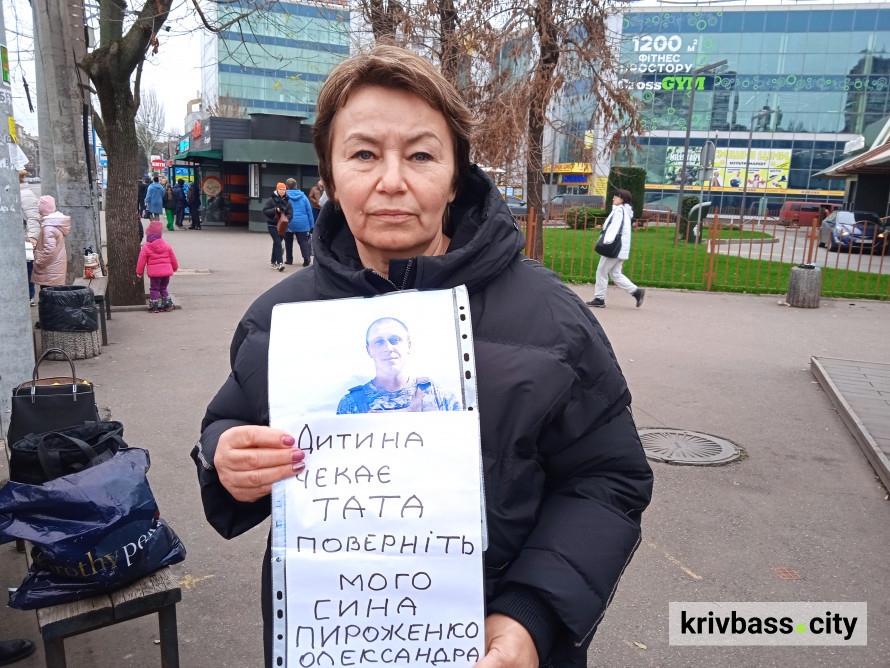 1200 м²
ФІТНЕС
ПРОСТОРУ
CrossGYM
ДИТИНА
ЧЕКАЄ
ТАТА
ПОВЕРНІТЬ
МОГО
СИНА
ПИРОЖЕНКО
ОЛЕКСАНДРА
krivbass.city